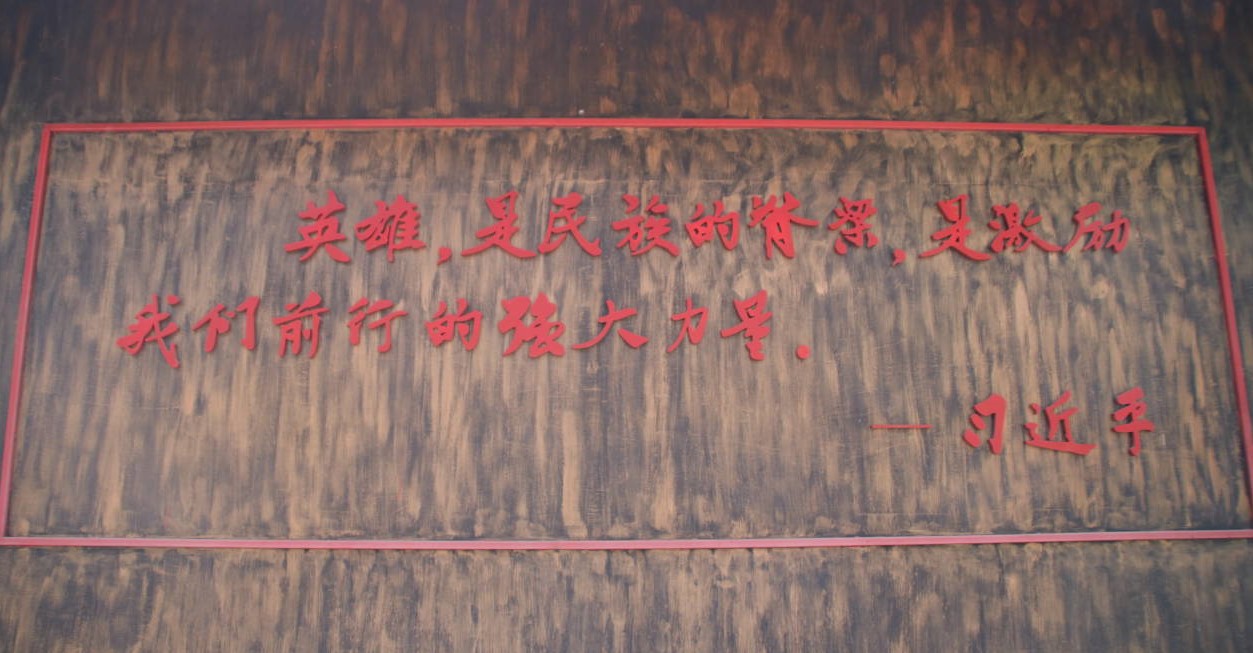 英雄,是民族的脊梁,是激励
我们前行的强大力量.
— 习近平